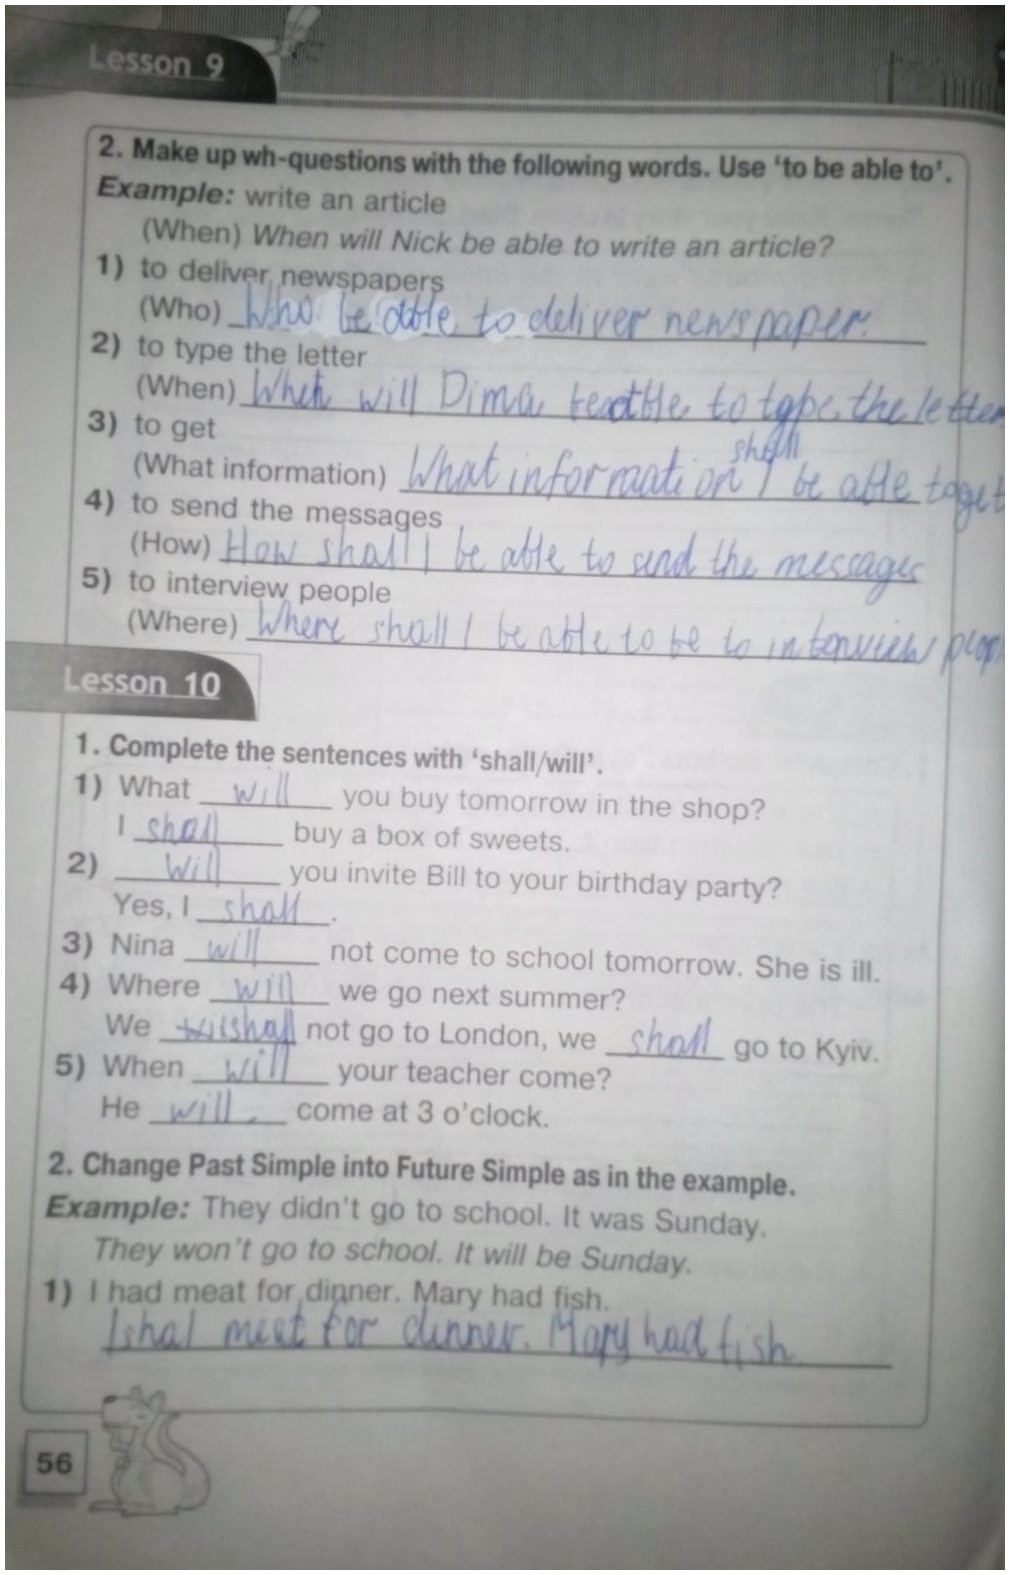 Lesson 9
2. Make up wh-questions with the following words. Use 'to be able to'.
Example: write an article
(When) When will Nick be able to write an article?
1) to deliver newspapers
(Who) Who be able to deliver newspaper.
2) to type the letter
(When) When will Dima be able to type the letter
3) to get
(What information) What information shall I be able to get
4) to send the messages
(How) How shall I be able to send the messages
5) to interview people
(Where) Where shall I be able to be to interview peopl
Lesson 10
1. Complete the sentences with 'shall/will'.
1) What will you buy tomorrow in the shop?
I shall buy a box of sweets.
2) Will you invite Bill to your birthday party?
Yes, I shall.
3) Nina will not come to school tomorrow. She is ill.
4) Where will we go next summer?
We shall not go to London, we shall go to Kyiv.
5) When will your teacher come?
He will. come at 3 o'clock.
2. Change Past Simple into Future Simple as in the example.
Example: They didn't go to school. It was Sunday.
They won't go to school. It will be Sunday.
1) I had meat for dinner. Mary had fish.
I shal meat for dinner. Mary had fish.
56